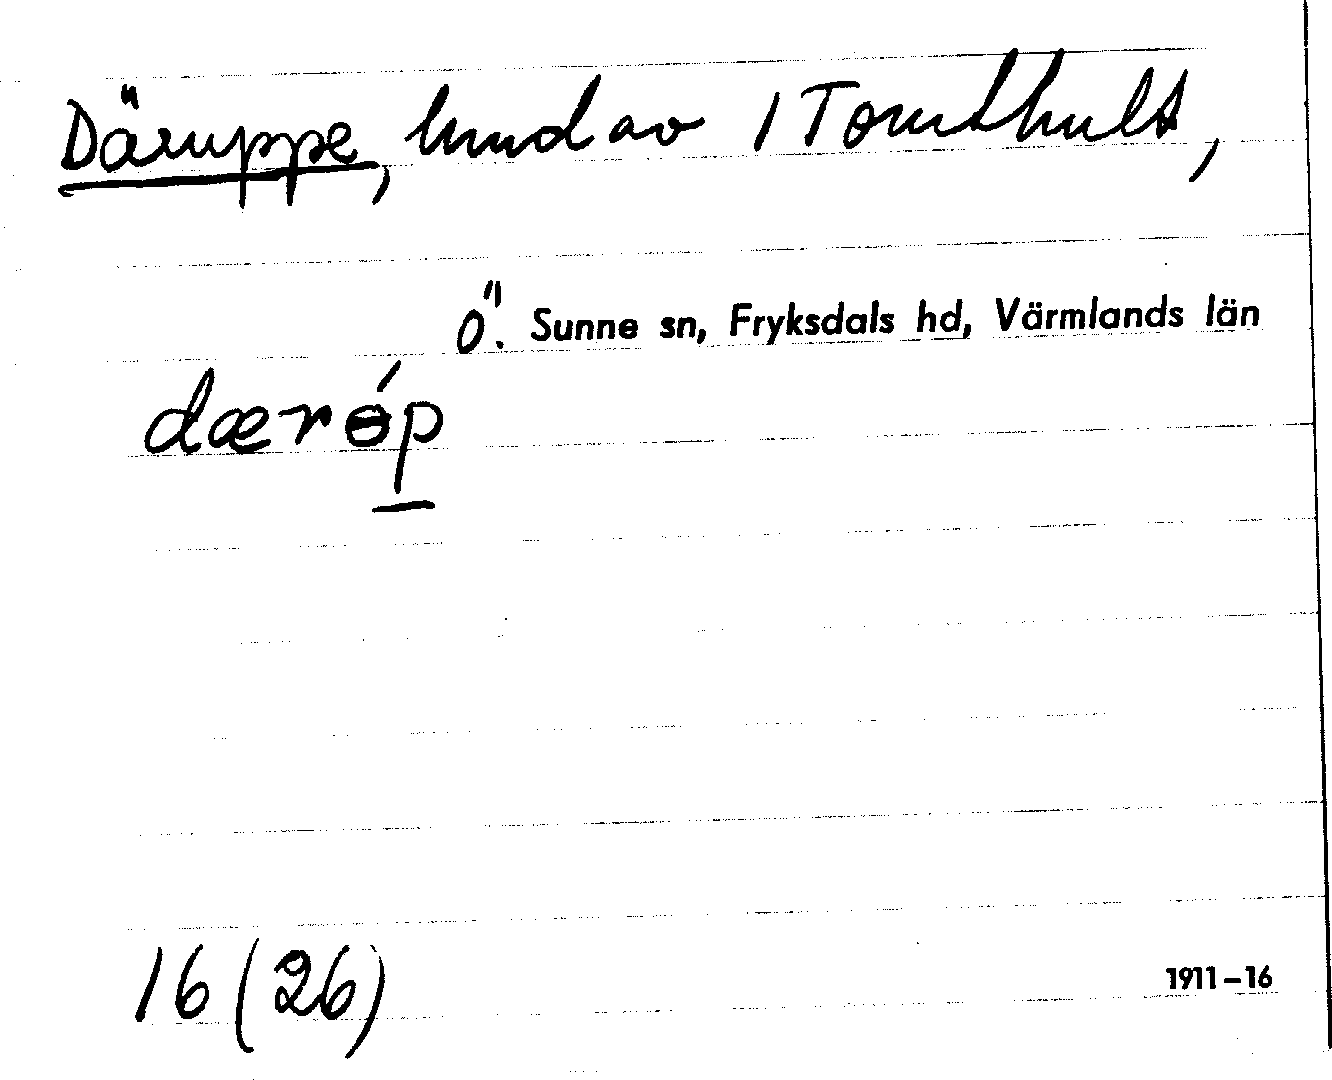 Däruppe, hmd av 1 Tomthult,
Ö. Sunne sn, Fryksdals hd, Värmlands län
dærɵ́p
16 (26)
1911-16